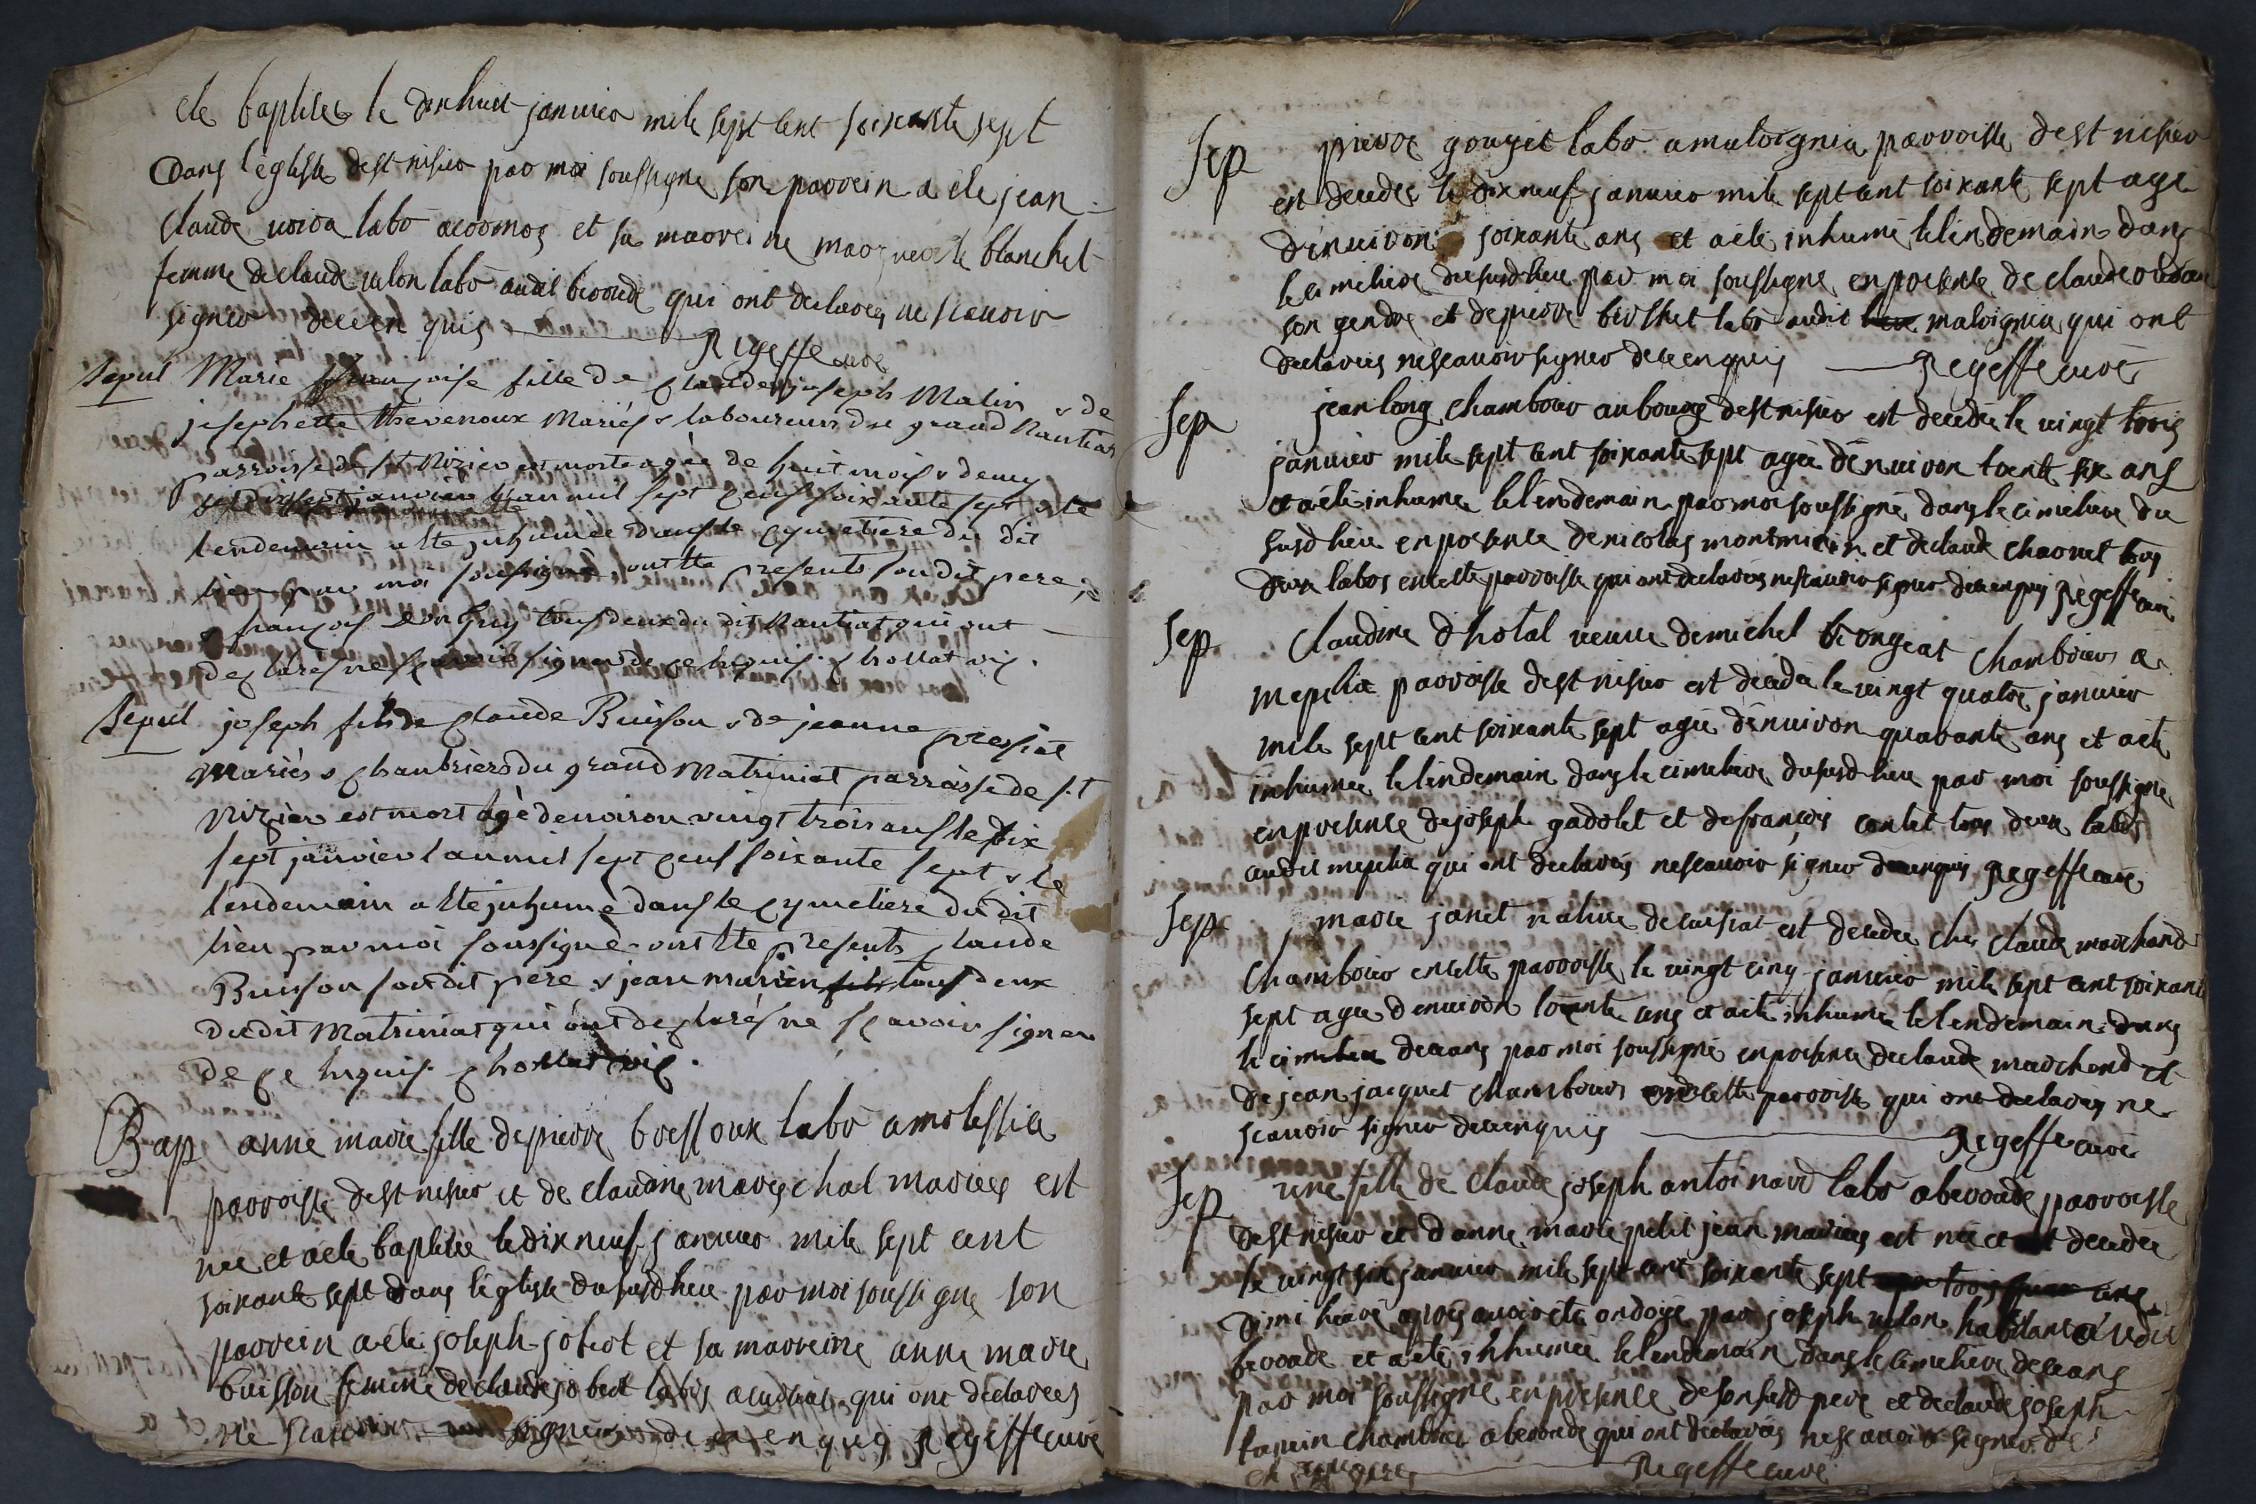 ete baptisée le dixhuit janvier mile sept cent soixante sept
Dans l'église de st nisier par moi soussigné son parrein a été jean
Claude labo et sa marreine margueritte blanchet
femme de claude vulon labo audit bevorde qui ont declarés ne scavoir
signer de ce enquis Regeffe curé
Sepul Marie françoise fille de claude joseph Matin & de
josephette thevenoux Mariés & laboureurs du grand Nantiat
parroisse de st Nizier est morte agée de huit mois & demy
le dixsept janvier l'an mil sept cens soixante sept & le
lendemain a ete inhumée dans le cymetiere du dit
lieu par moi soussigné ont ete presents son dit pere,
& françois tous deux du dit Nantiat qui ont
declarés ne scavoir signer de ce enquis chossat vic.
Sepul joseph fils de claude Buison & de jeanne pressiat
Mariés & chanbriers du grand Matriniat parroisse de st
Nizier est mort agé denviron vingt trois ans le dix
sept janvier l'an mil sept cens soixante sept & le
lendemain a ete inhumé dans le cymetiere du dit
lieu par moi soussigné ont ete presents claude
Buison son dit pere & jean marien fils tous deux
du dit Matriniat qui ont declarés ne scavoir signer
de ce enquis chossat vic.
Bap anne marie fille de pierre bressoux labo a molessia
parroisse de st nisier et de claudine mareschal mariés est
née et a ete baptisée le dixneuf janvier mile sept cent
soixante sept dans l'église du susd lieu par moi soussigné son
parrein a été joseph jobert et sa marreine anne marie
buisson femme de claude jobert labo qui ont declarés
ne scavoir signer de ce enquis Regeffe curé
Sep pierre gouget labo a maloignia parroisse de st nisier
est decedé le dixneuf janvier mile sept cent soixante sept agé
d'environ soixante ans et a eté inhumé le lendemain dans
le cimetiere du susd lieu par moi soussigné en presence de claude
son gendre et de pierre brochet labo audit maloignia qui ont
declarés ne scavoir signer de ce enquis Regeffe curé
Sep jean long chambrier au bourg de st nisier est decedé le vingt trois
janvier mile sept cent soixante sept agé d'environ trente six ans
et a eté inhumé le lendemain par moi soussigné dans le cimetiere du
susd lieu en presence de nicolas montmicin et de claude charnet tous
deux labos en cette parroisse qui ont declarés ne scavoir signer de ce enquis Regeffe curé
Sep Claudine d'hotal veuve de michel brongeat chambrier a
mepelia parroisse de st nisier est decedée le vingt quatre janvier
mile sept cent soixante sept agée d'environ quarante ans et a eté
inhumée le lendemain dans le cimetiere du susd lieu par moi soussigné
en presence de joseph gadolet et de françois contet tous deux labos
audit mepelia qui ont declarés ne scavoir signer de ce enquis Regeffe curé
Sep marie janet native de cuisiat est decedée chez claude marchand
chambrier en cette parroisse le vingt cinq janvier mile sept cent soixante
sept agée d'environ trente ans et a eté inhumée le lendemain dans
le cimetiere de ceans par moi soussigné en presence de claude marchand et
de jean jacquet chambriers en cette parroisse qui ont declarés ne
scavoir signer de ce enquis Regeffe curé
Sep une fille de claude joseph antoinard labo a bevorde parroisse
de st nisier et d'anne marie petit jean mariés est née et est decedée
le vingt six janvier mile sept cent soixante sept
demi heure apres avoir été ondoyé par joseph vulon habitant audit
bevorde et a eté inhumée le lendemain dans le cimetiere de ceans
par moi soussigné en presence de son susd pere et de claude joseph
chambrier a bevorde qui ont declarés ne scavoir signer de
ce Regeffe curé